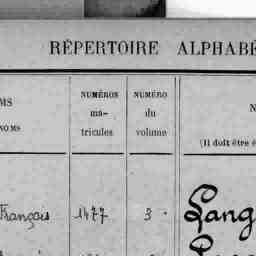 RÉPERTOIRE ALPHABÉ
MS
NOMS
NUMÉROS
ma-
tricules
NUMÉRO
du
volume
N
(Il doit être é
François 1477 3 Lang